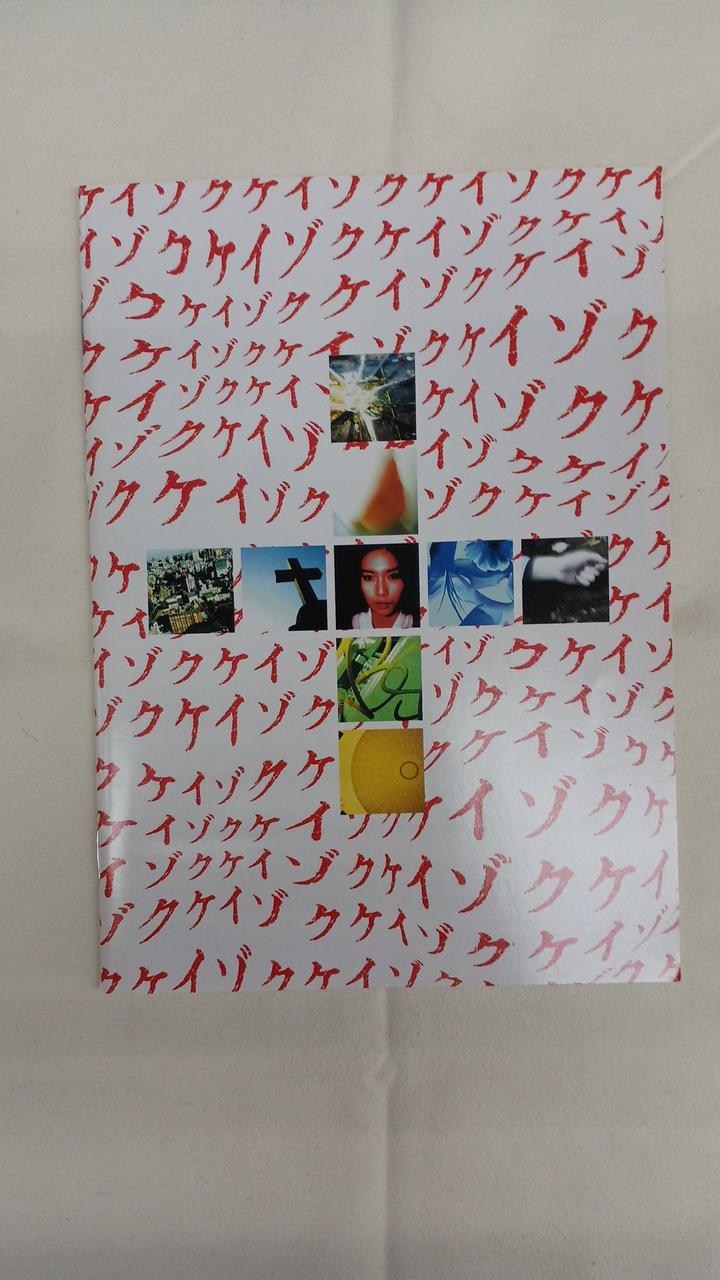 ケイゾクケイゾクケイゾクケイ
イゾクケイゾクケイゾクケイゾ
ゾクケイゾクケイゾクケイゾ
クケイゾクケイゾクケイゾク
ケイゾクケイクケイゾクケ
イゾクケイゾイゾクケイ
ゾクケイゾクゾクケイゾク
クケ
ケイ
イゾクケイゾイゾクケイゾ
ゾクケイゾクゾクケイゾク
クケイゾクケクケイゾクケ
ケイゾクケイゾクケイゾクケ
イゾクケイゾクケイゾクケイ
ゾクケイゾクケイゾクケイゾク
クケイゾクケイゾクケイゾク